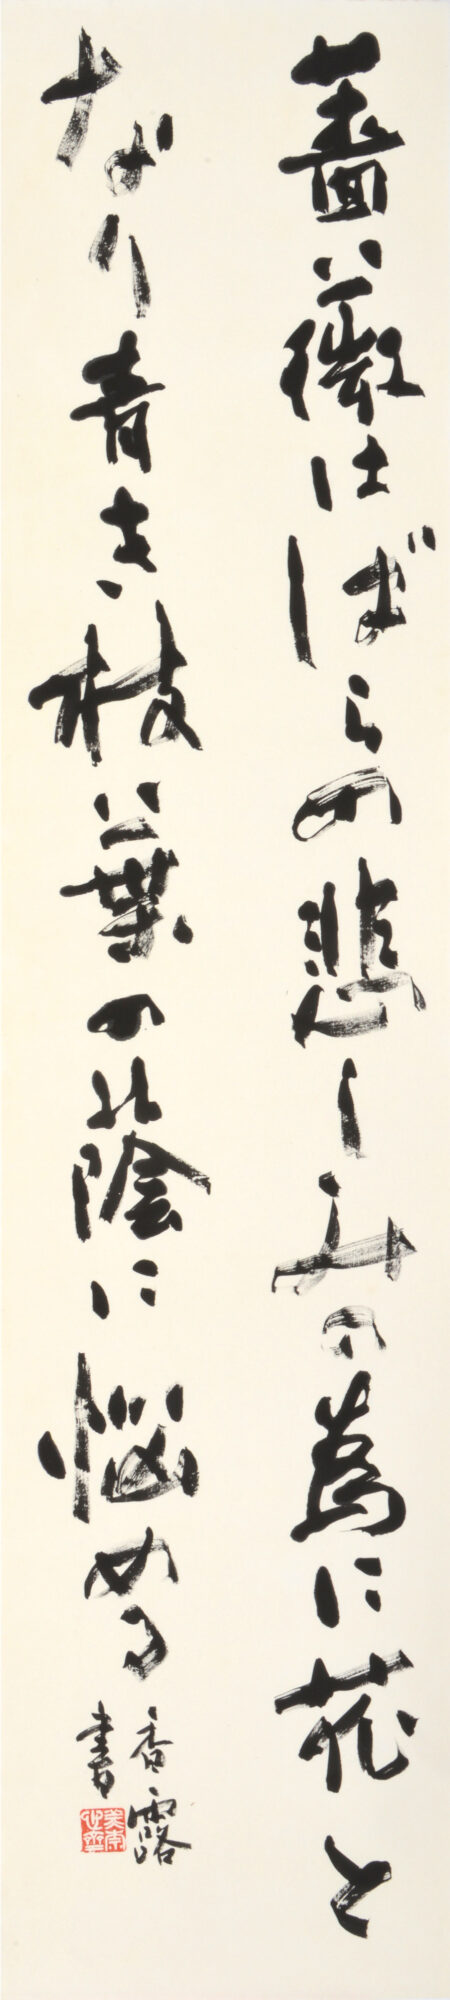 薔薇はばらの悲しみの為に花と
なり青き枝葉の蔭に悩める
香露
書